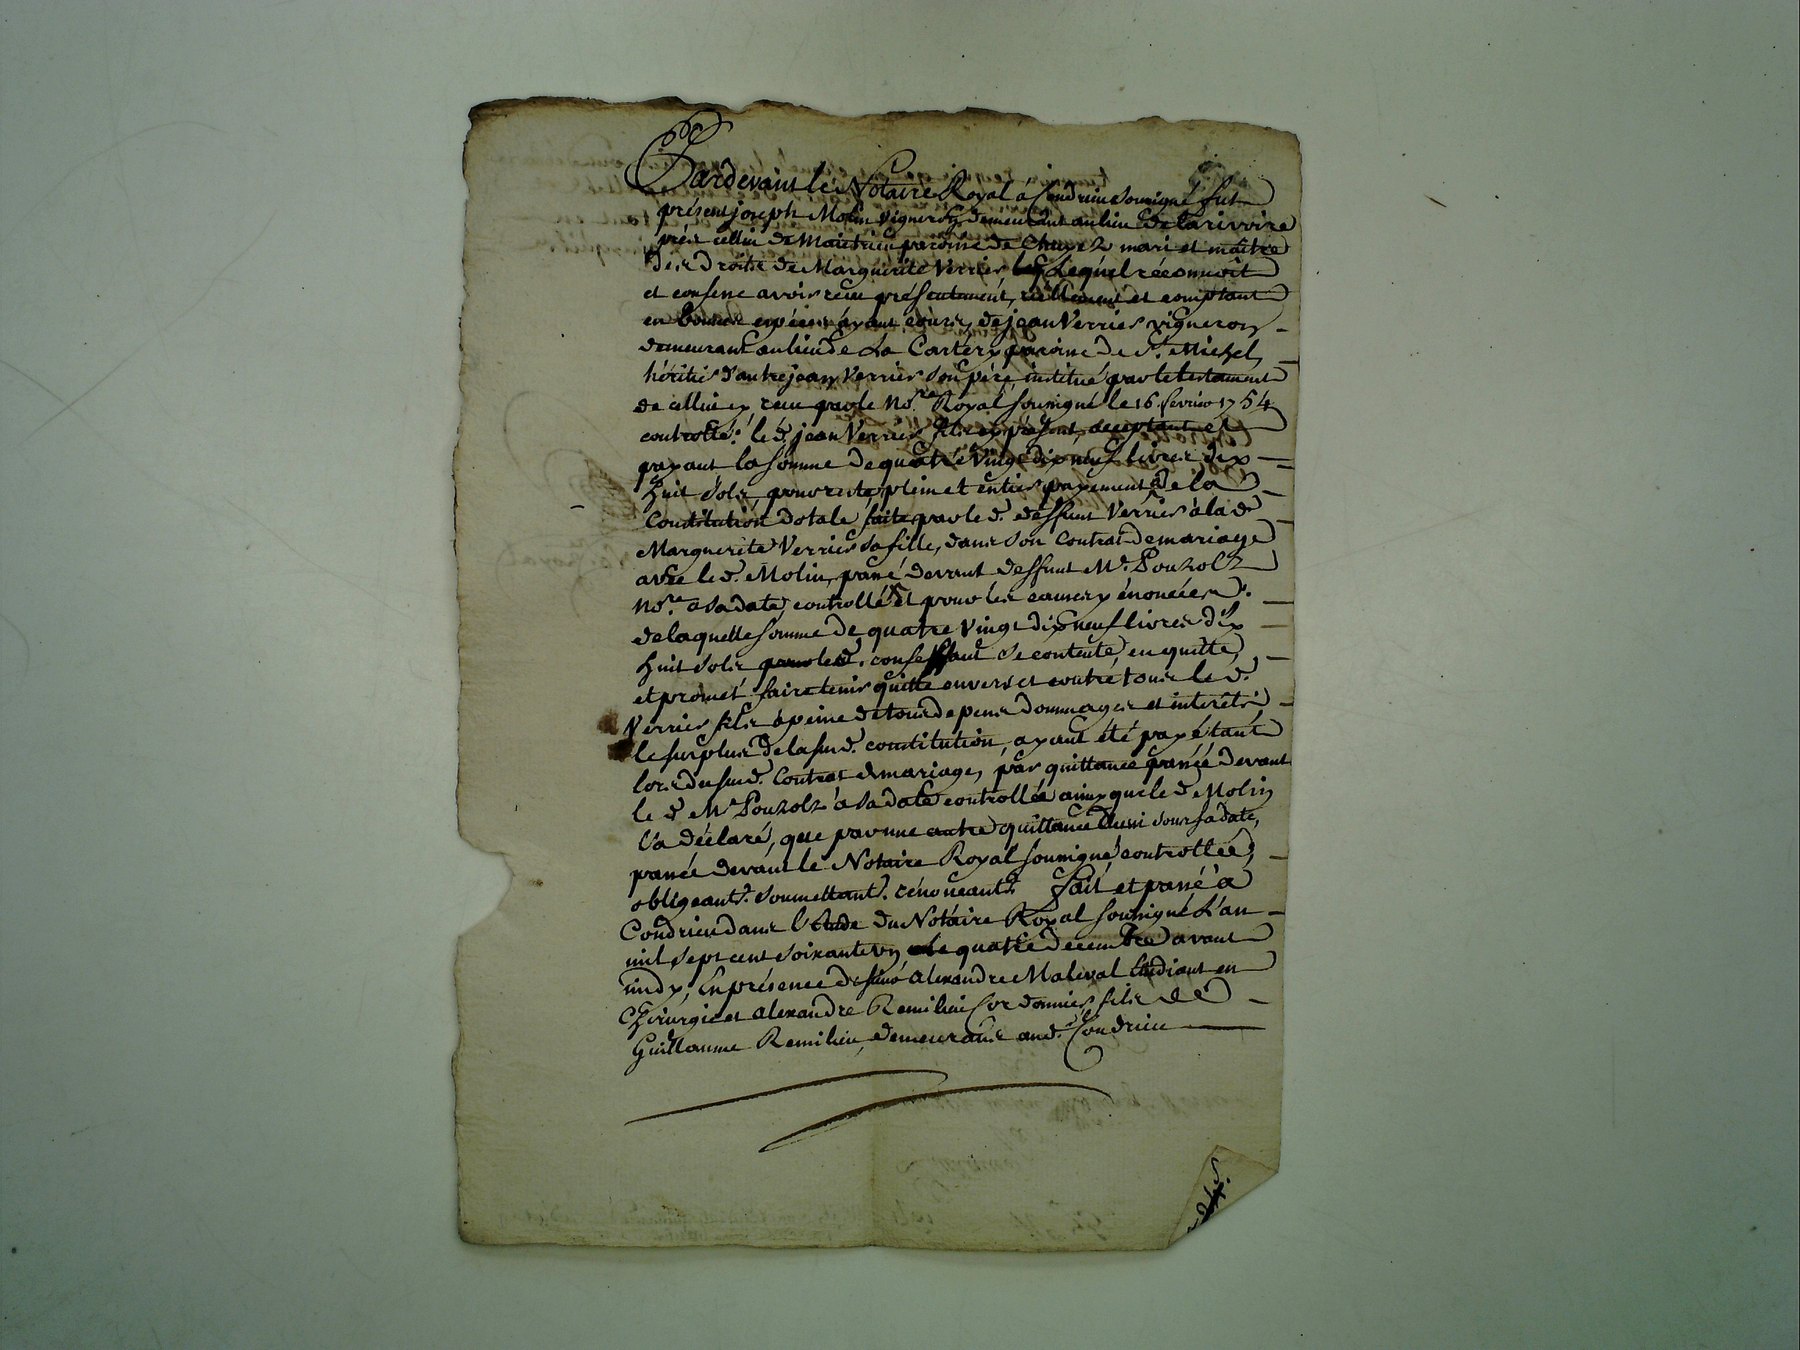 Pardevant le Notaire Royal à Condrieu soussigné fut
présent joseph Molin vigneron demeurant au lieu de la rivoire
près cellui de Maietrieu paroisse de Chuyez mari et maître
des droits de Marguerite Verrier lequel réconnoit
et confesse avoir reçu présentement, réellement et comptant
en bonnes espèces ayant cours, de jean Verrier vigneron
demeurant au lieu de La Cartery paroisse de St. Michel,
héritier d'autre jean Verrier son père, institué par le testament
de cellui cy, reçu par le no.re Royal soussigné le 16 fevrier 1754
controllé: le d. jean Verrier fils cy présent, acceptant et
payant la somme de quatre vingt dix neuf livres dix
huit sols, pour reste, plein et entier payement de la
Constitution dotale faite par le d. deffunt Verrier à la d.
Marguerite Verrier sa fille, dans son Contrat de mariage
avec le d. Molin, passé devant deffunt Me. Pouzolz
no.re a sa date, controllé et pour les causes y énoncées.
de laquelle somme de quatre vingt dix neuf livres dix
huit sols le d. confessant se contente, en quitte,
et promet faire tenir quitte envers et contre tous le d.
Verrier fils à peine de tous depens dommages et intérêts
le surplus de la sus d. constitution, ayant été payé tant
lors du sus d. Contrat de mariage, par quittance passée devant
le d. Me. Pouzolz à sa date controllée ainsy que le d. Molin
l'a déclaré, que par une autre quittance aussi sous sa date,
passée devant le Notaire Royal soussigné controllée,
obligeant. soumettant. rénonceant. fait et passé à
Condrieu dans l'étude du Notaire Royal soussigné L'an
mil sept cent soixante un le quatre décembre avant
midy, En présence de sieur alexandre Maleval Etudiant en
Chirurgie et alexandre Remilieu Cordonnier fils de
Guillaume Remilieu, demeurants aud. Condrieu